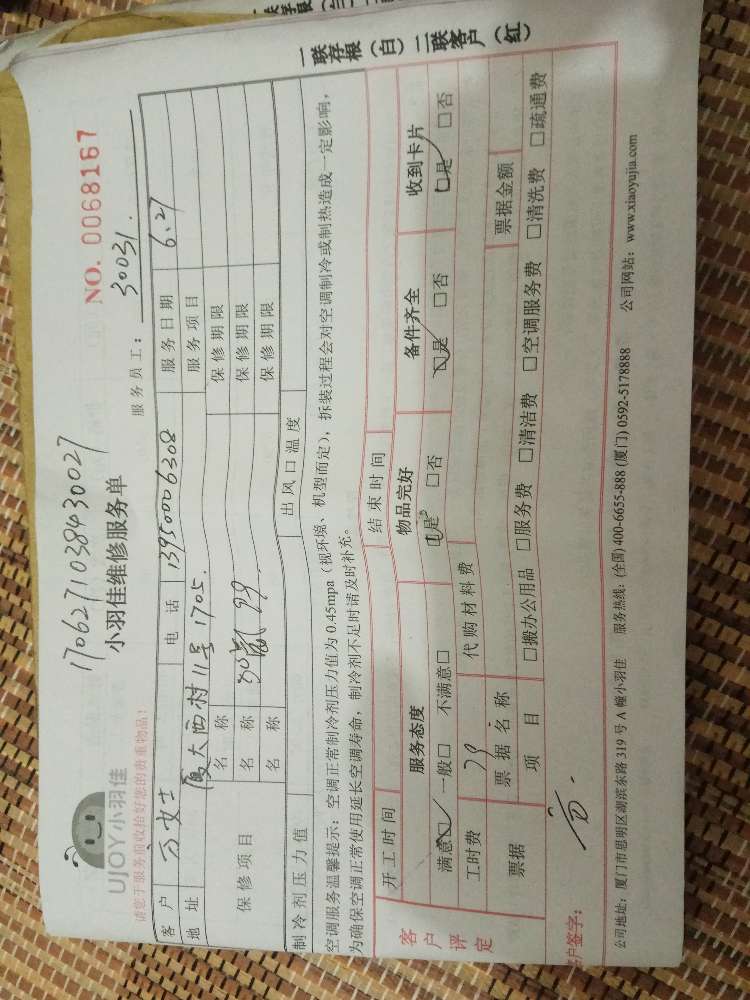 一联存根（白）二联客户（红）
NO. 0068167
1706271038430027
UJOY小羽佳
小羽佳维修服务单
服务员工： 30031.
请您于服务前收拾好您的贵重物品！
客户 方女士 电话 13950006308 服务日期 6.27
地址 厦大西村11号1705. 服务项目
保修项目 名称 保修期限
名称 保修期限
名称 保修期限
制冷剂压力值 出风口温度
空调服务温馨提示：空调正常制冷剂压力值为 0.45mpa（视环境、机型而定），拆装过程会对空调制冷或制热造成一定影响，
为确保空调正常使用延长空调寿命，制冷剂不足时请及时补充。
开工时间 结束时间
客户评定 服务态度 物品完好 备件齐全 收到卡片
满意☑ 一般□ 不满意□ ☑是 □否 ☑是 □否 ☑是 □否
工时费 79 代购材料费
票据 票据名称 票据金额
项目 □搬办公用品 □服务费 □清洁费 □空调服务费 □清洗费 □疏通费
客户签字：
公司地址：厦门市思明区湖滨东路 319 号 A 幢小羽佳 服务热线：(全国) 400-6655-888 (厦门) 0592-5178888 公司网站：www.xiaoyujia.com